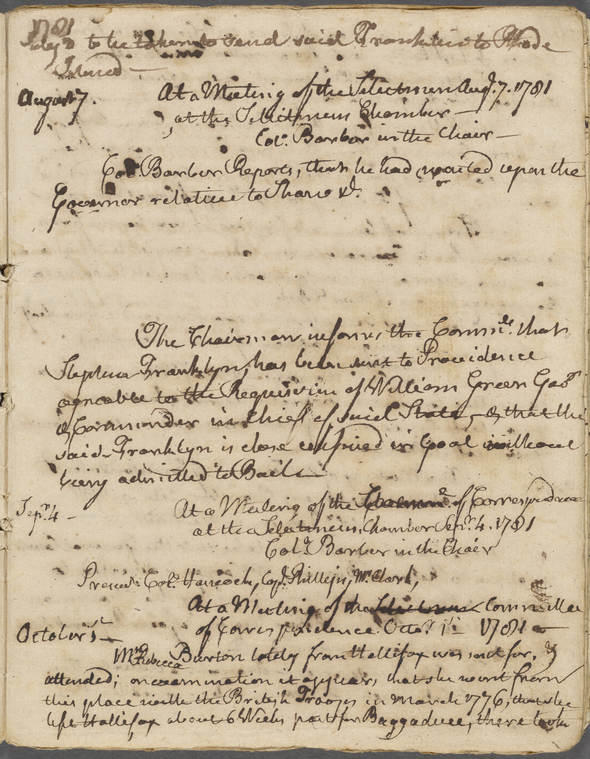 1781
to be taken to send said Franklin to Rhode
Island —
August 7. At a Meeting of the Selectmen Augt. 7. 1781
at the Selectmens Chamber —
Colo. Barber in the Chair —
Colo. Barber Reports, that he had waited upon the
Governor relative to Shaw &c.
The Chairman informs the Commee. that
Stephen Franklyn, has been sent to Providence
agreable to the Requisition of William Green Govr.
& Commander in Chief of said State, & that the
said Franklyn is close confined in Goal without
being admitted to Bail —
Sepr. 4 — At a Meeting of the Commee. of Correspondence
at the Selectmens Chamber Sepr. 4. 1781
Colo. Barber in the Chair
Present Colo. Hancock, Cap. Phillips, Mr. Clark,
At a Meeting of the Selectmen Committee
of Correspondence Octor. 1st. 1781 —
October 1st —
Mrs. Rebecca Burton lately from Hallifax was sent for, &
attended; on examination it appears, that she went from
this place with the British Troops in March 1776, that she
left Hallifax about 6 Weeks past for Baggaduce, there took